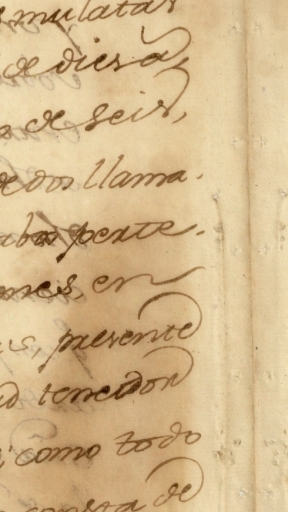 mulatas
de diesa,
de seis,
de dos llama-
perte-
mes, en
presente
tenedor
como todo
consta de